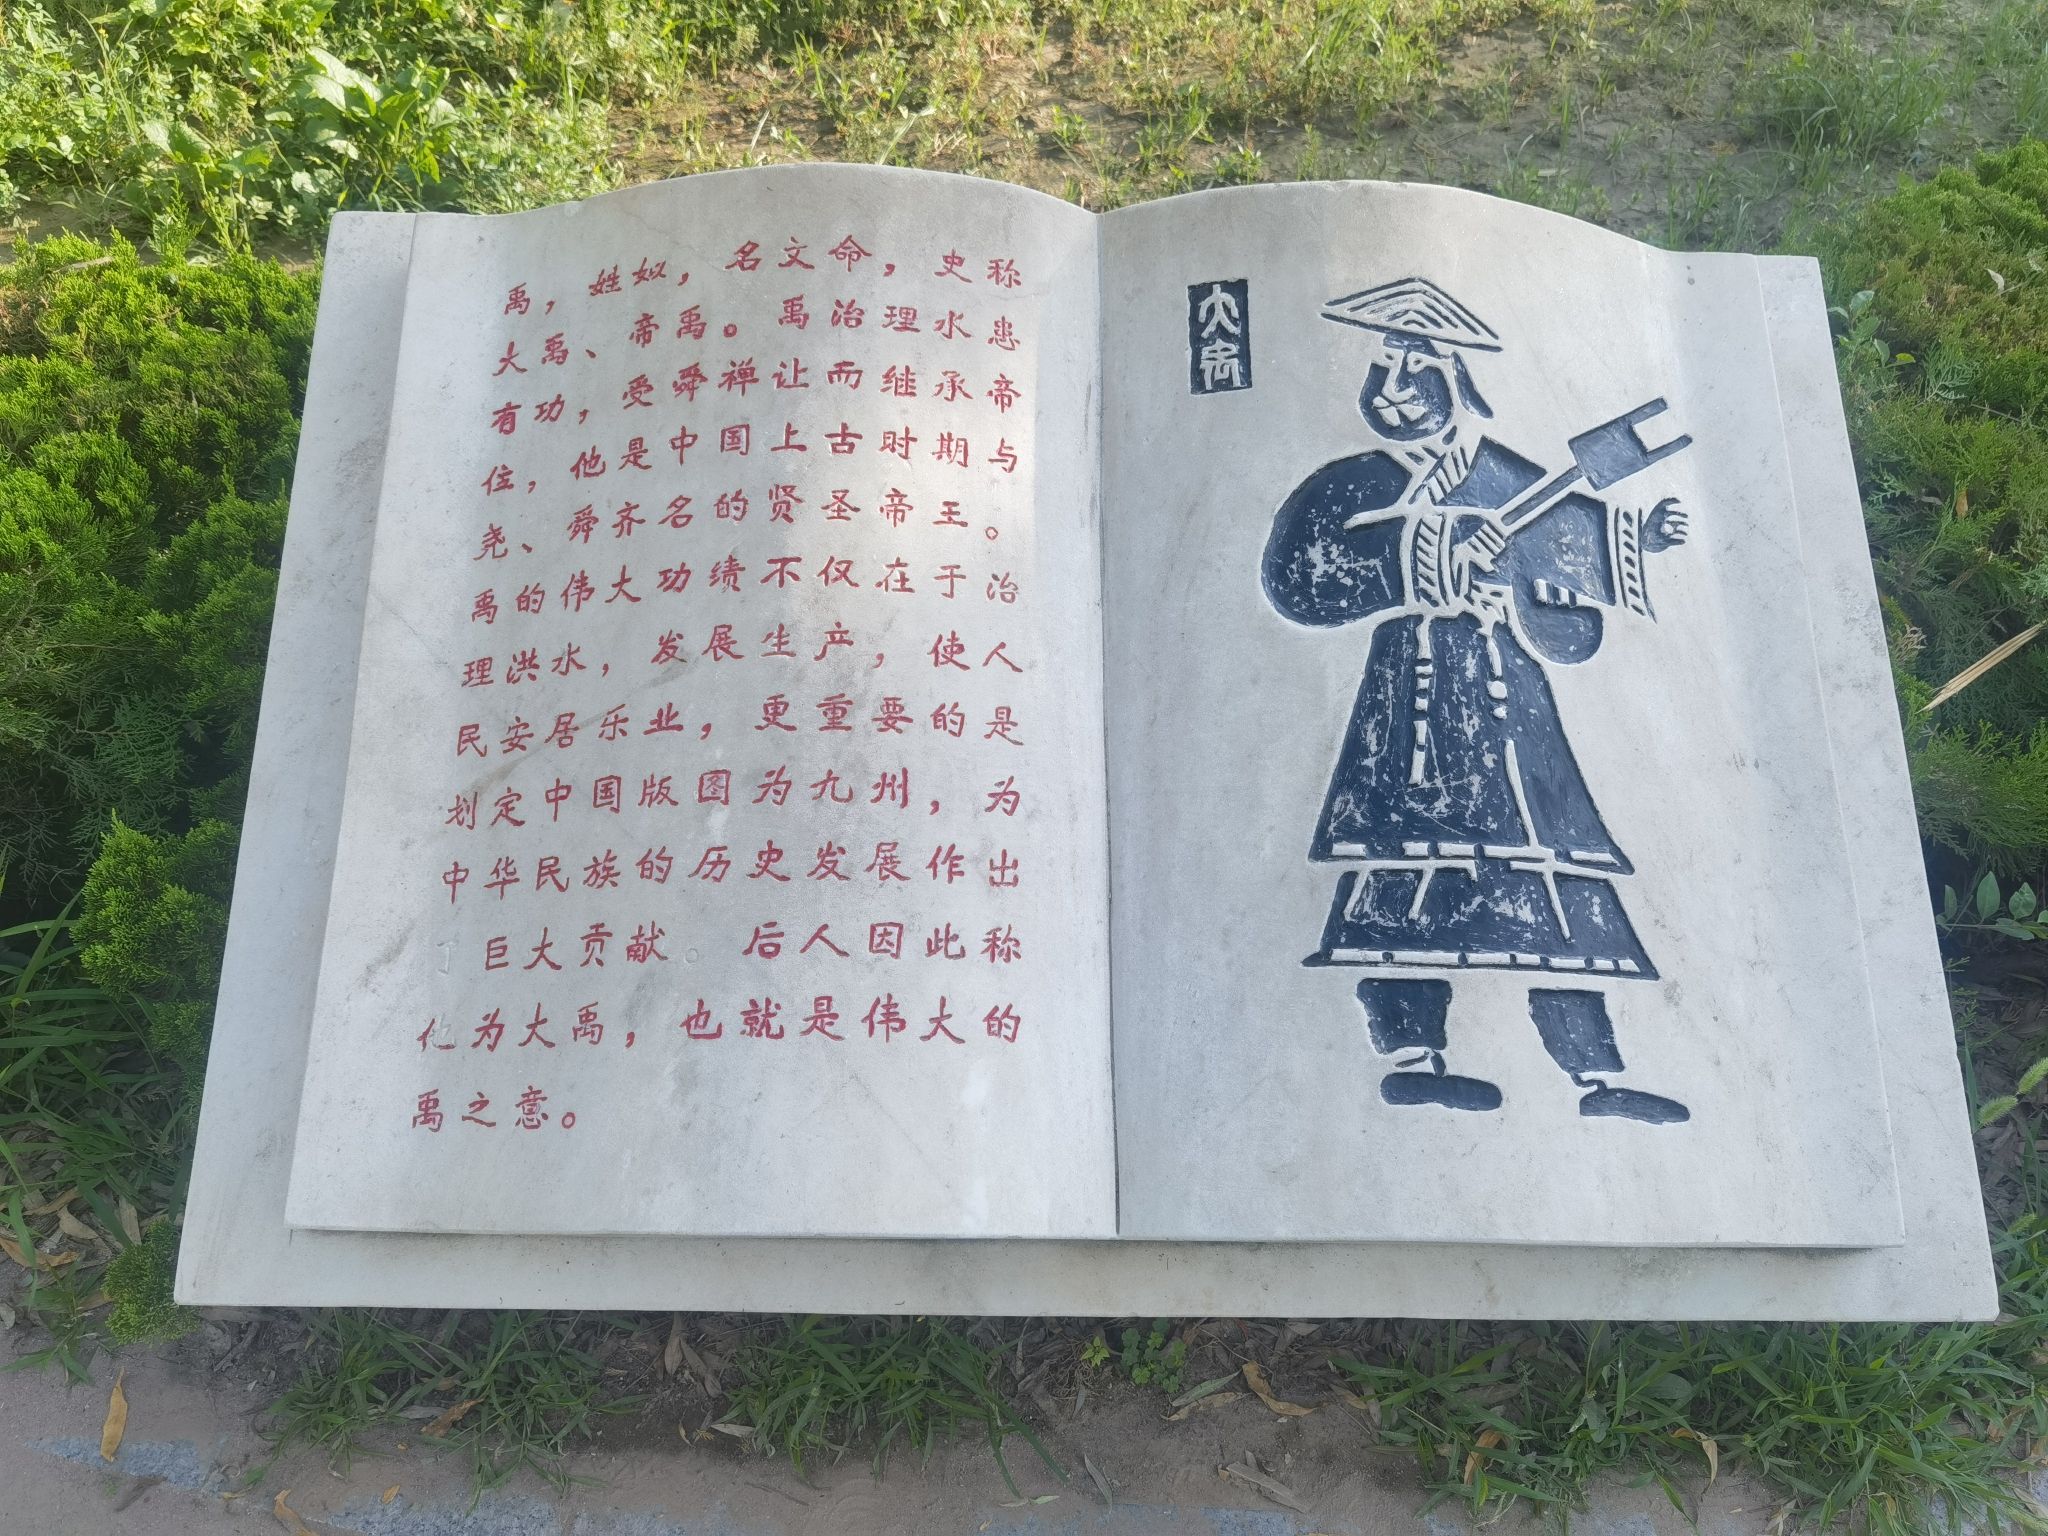 禹，姓姒，名文命，史称
大禹、帝禹。禹治理水患
有功，受舜禅让而继承帝
位，他是中国上古时期与
尧、舜齐名的贤圣帝王。
禹的伟大功绩不仅在于治
理洪水，发展生产，使人
民安居乐业，更重要的是
划定中国版图为九州，为
中华民族的历史发展作出
了巨大贡献。后人因此称
他为大禹，也就是伟大的
禹之意。
大禹